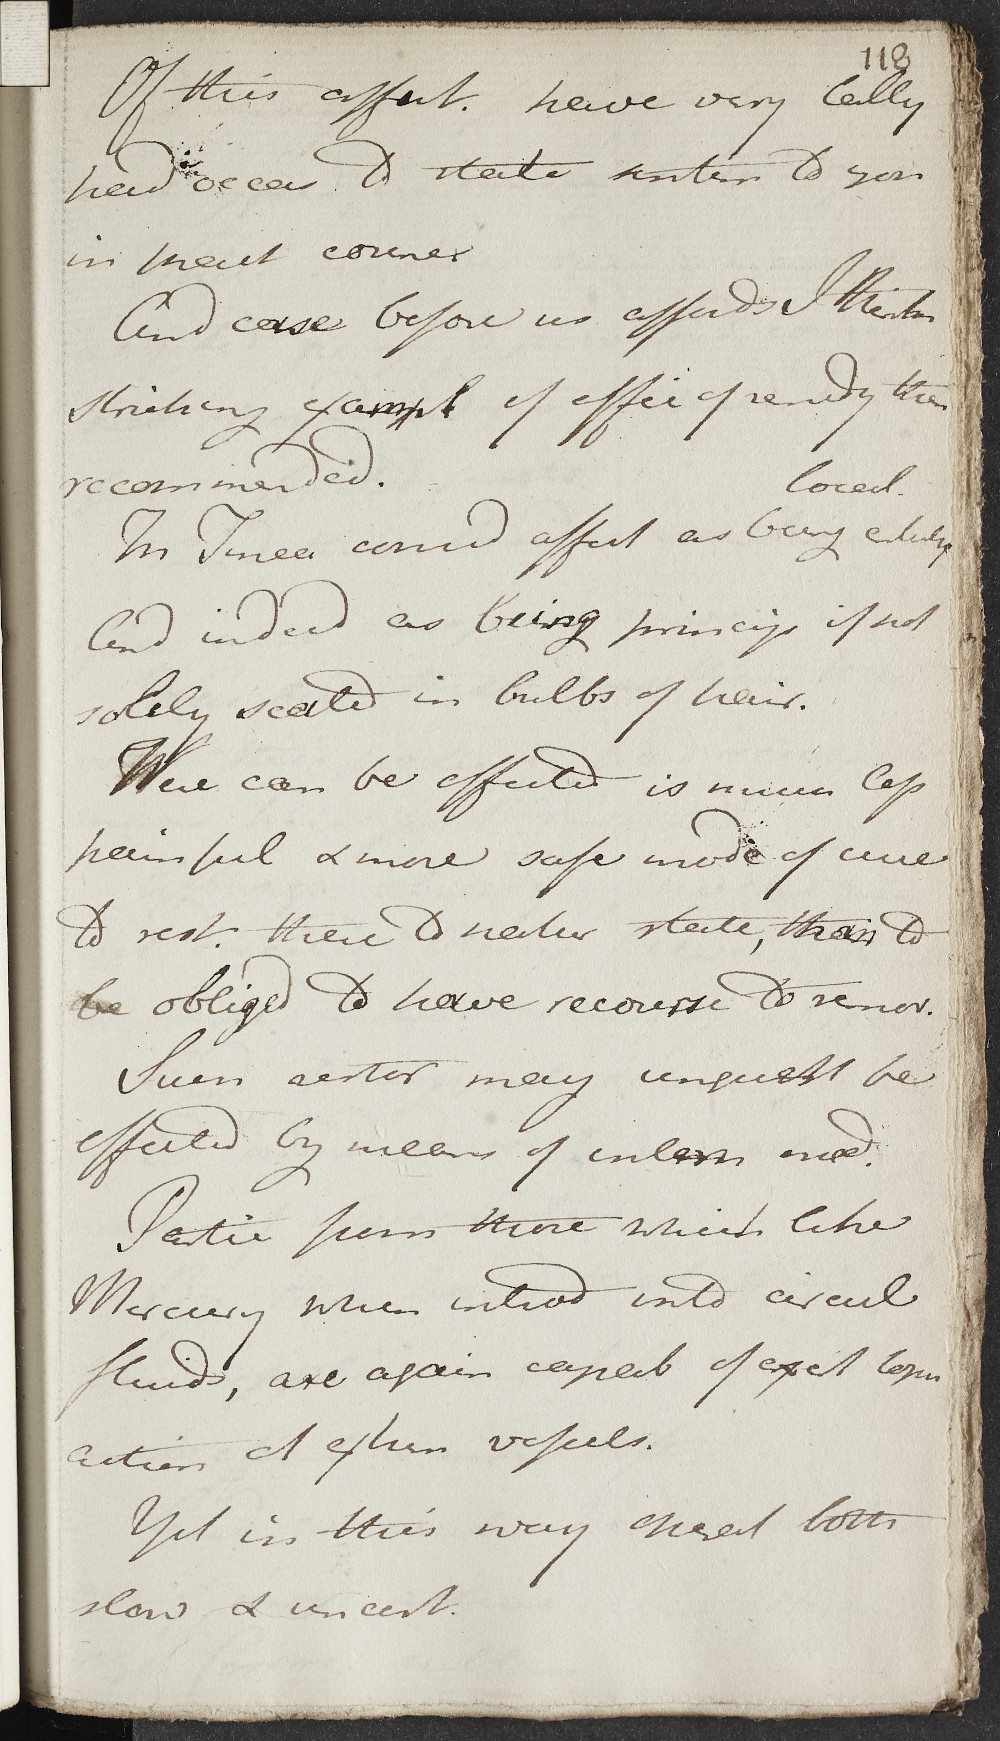 118
Of this affect. have very lally
had occas to state senten to you
in preceut course
And case before us affords I think
striking exampl of effic of remedy then
recommended.
local.
In Tinea consid affect as being entirely
And indeed as being princip if not
solely seated in bulbs of hair.
Were can be effected is much less
painful & more safe mode of cure
to rest. these to natur state, than to
be obliged to have recourse to remov.
Such restor may unquest be
effected by means of intern med.
Partic from those which like
Mercury when introd into circul
fluids, are again capab of exert
action at exhan vessels.
Yet in this way operat both
slow & uncert.